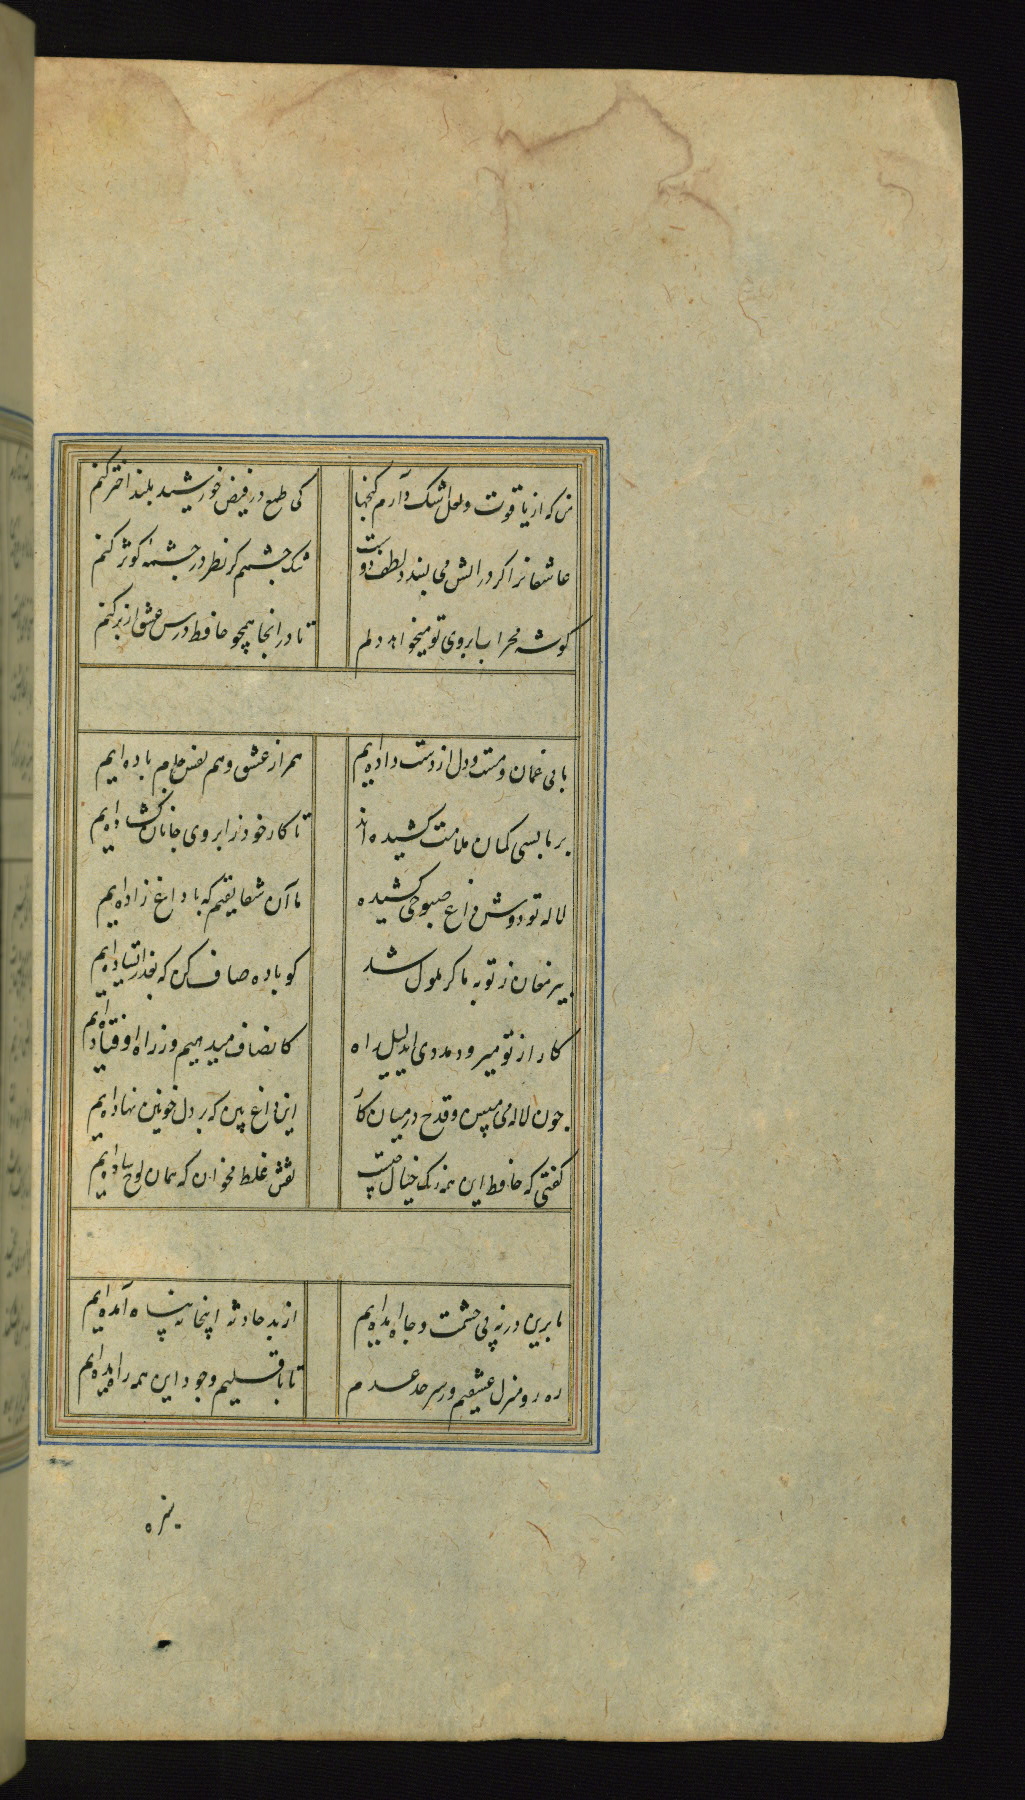 من که از یاقوت و لعل اشک دارم گنجها کی طمع در فیض خورشید بلند اختر کنم
عاشقانرا گر در اتش می پسندد لطف دوست تنک چشمم گر نظر در چشمهٔ کوثر کنم
گوشه محراب ابروی تو میخواهد دلم تا در انجا همچو حافظ درس عشق از بر کنم
ما بی غمان مست و دل از دست داده ایم همراز عشق و هم نفس جام باده ایم
بر ما بسی کمان ملامت کشیده اند تا کار خود ز ابروی جانان گشاده ایم
لاله تو دوش داغ صبوحی کشیده ما آن شقایقیم که با داغ زاده ایم
پیر مغان ز توبه ما گر ملول شد گو باده صاف کن که بعذر ایستاده ایم
کار از تو میرود مددی ای دلیل راه کانصاف میدهیم و ز راه اوفتاده ایم
چون لاله می مبین و قدح در میان کار این داغ بین که بر دل خونین نهاده ایم
گفتی که حافظ این همه رنک خیال چیست نقش غلط مخوان که همان لوح ساده ایم
ما برین در نه پی حشمت و جاه امده ایم از بد حادثه اینجا به پناه آمده ایم
ره رو منزل عشقیم و ز سر حد عدم تا باقلیم وجود این همه راه امده ایم